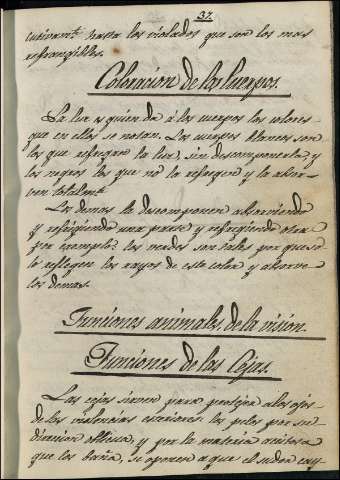 37.
cutivamte. hasta los violados que son los mas
refrangibles.
Coloracion de los Cuerpos.
La luz es quien da á los cuerpos los colores
que en ellos se notan. Los cuerpos blancos son
los que refugen la luz, sin descomponerla, y
los negros los que no la refugen y la absor-
ven totalmte
Los demas la descomponen absorviendo
y refugiendo una parte y refugiendo otra
por exemplo: los verdes son tales por que so-
lo reflegen los rayos de este color y absorve
los demas.
Funciones animales de la vision.
Funciones de las Cejas.
Las cejas sirven para protejer a los ojos
de las violencias exteriores. los pelos por su di-
direccion oblicua, y por la materia untosa
que los baña, se oponen a que el sudor cay-